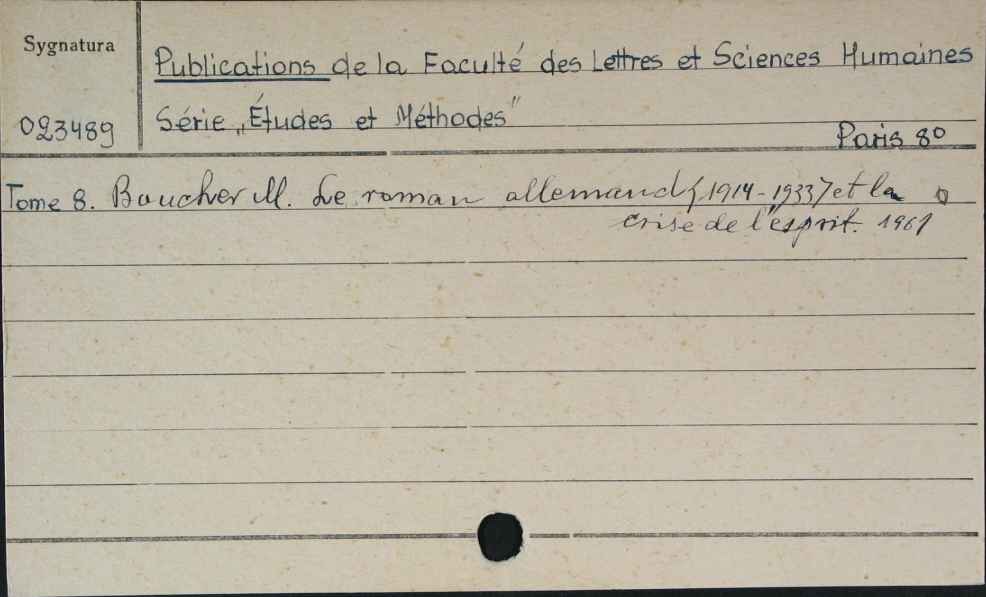 Sygnatura
Publications de la Faculté des Lettres et Sciences Humaines
Série „Études et Méthodes”
023489
Paris 8°
Tome 8. Boucher M. Le roman allemand (1914-1933) et la
crise de l'esprit. 1961